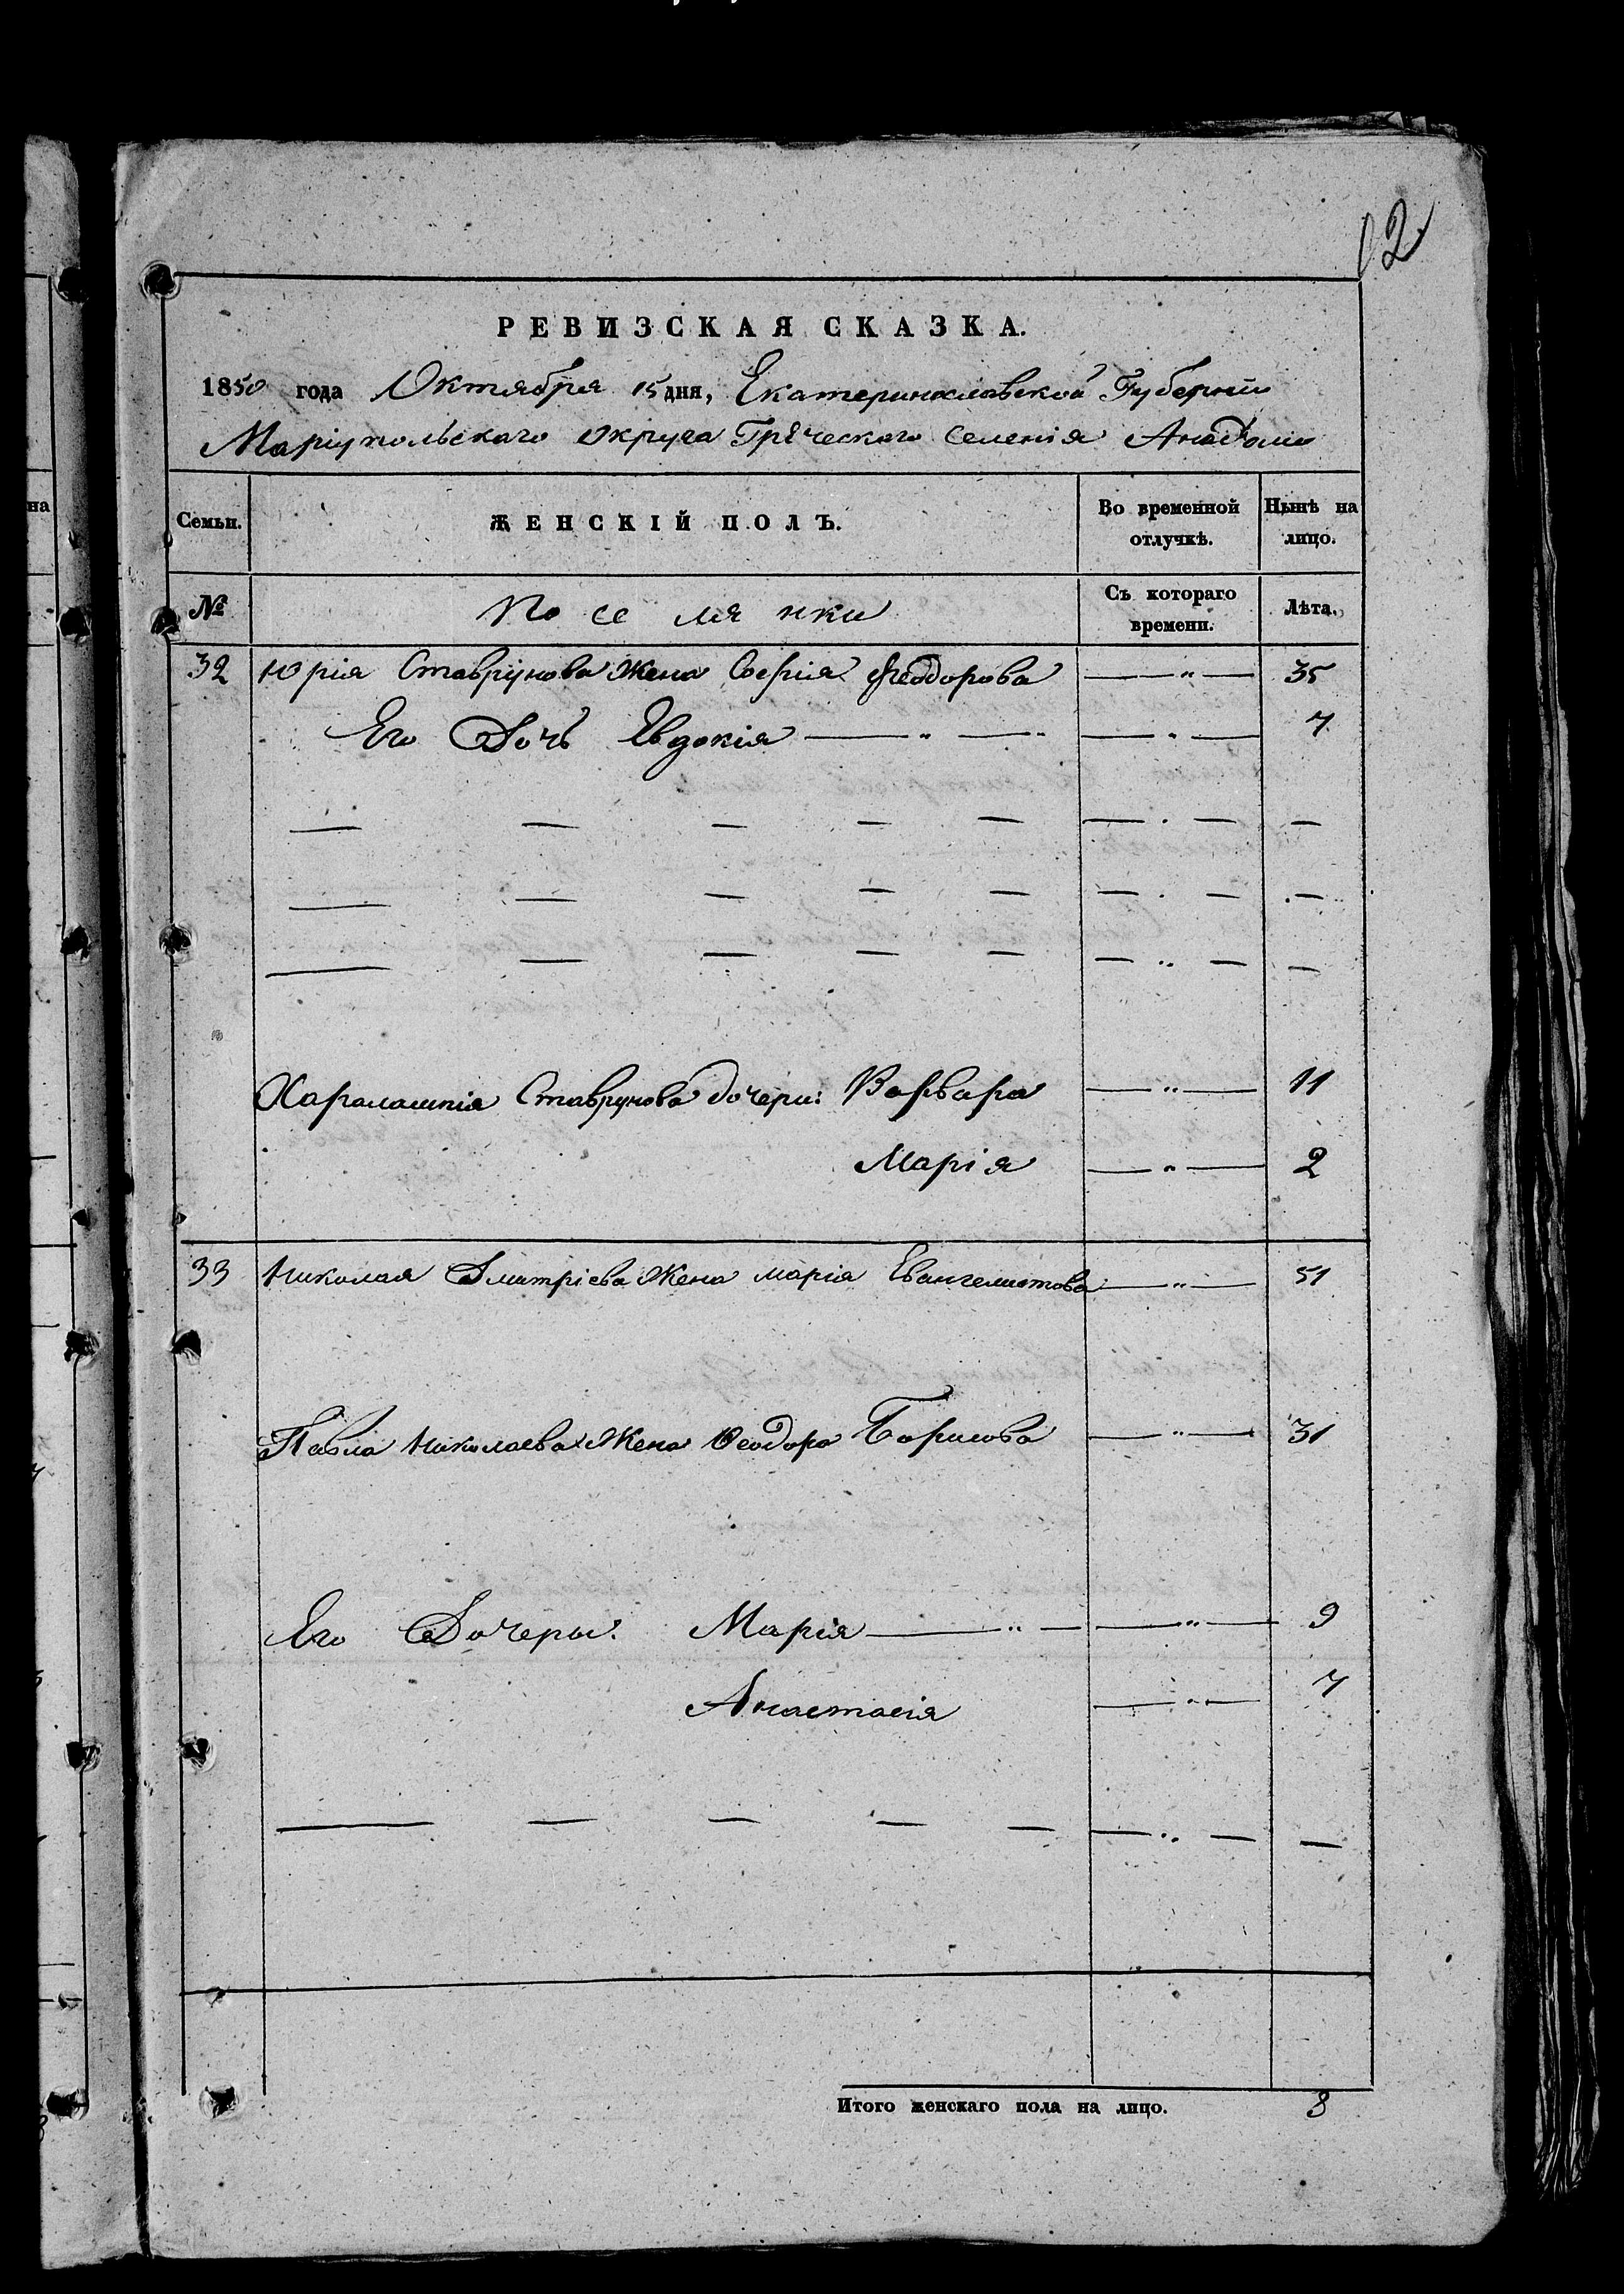 12
РЕВИЗСКАЯ СКАЗКА.
1850 года Октября 15 дня, Екатеринославской Губерніи
Маріупольскаго округа Греческаго селенія Анадоли
Семьи.
ЖЕНСКІЙ ПОЛЪ.
Во временной отлучкѣ.
Нынѣ на лицо.
№
Поселянки
Съ котораго времени.
Лѣта.
32 Юрія Ставринова Жена Софія Феодорова — " — 35
Его Дочь Евдокія — " — " — " — 7
Харалампія Ставринова дочери: Варвара — " — 11
Марія — " — 2
33 Николая Дмитріева Жена марія Евангелистова — " — 51
Павла Николаева Жена Феодора Борисова — " — 31
Его Дочеры: Марія — " — — " — 9
Анастасія — " — 7
Итого женскаго пола на лицо. 8
на